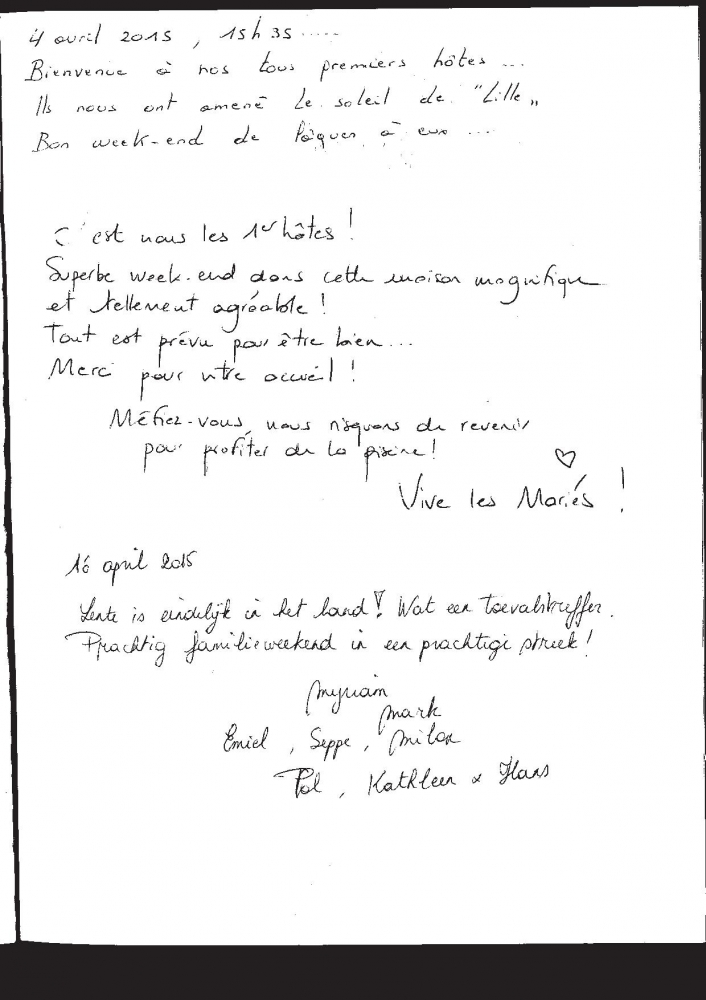 4 avril 2015, 15h35.....
Bienvenue à nos tous premiers hôtes...
Ils nous ont amené le soleil de "Lille"
Bon week-end de Pâques à eux...
C'est nous les 1er hôtes!
Superbe week-end dans cette maison magnifique
et tellement agréable!
Tout est prévu pour être bien...
Merci pour votre accueil!
Méfiez-vous, nous risquons de revenir
pour profiter de la piscine!
Vive les Mariés!
16 april 2015
Lente is eindelijk in het land! Wat een toevalstreffer.
Prachtig familieweekend in een prachtige streek!
Myriam
Mark
Emiel, Seppe, Milan
Pol, Kathleen & Hans